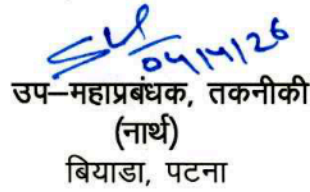 04/4/26
उप–महाप्रबंधक, तकनीकी
(नार्थ)
बियाडा, पटना